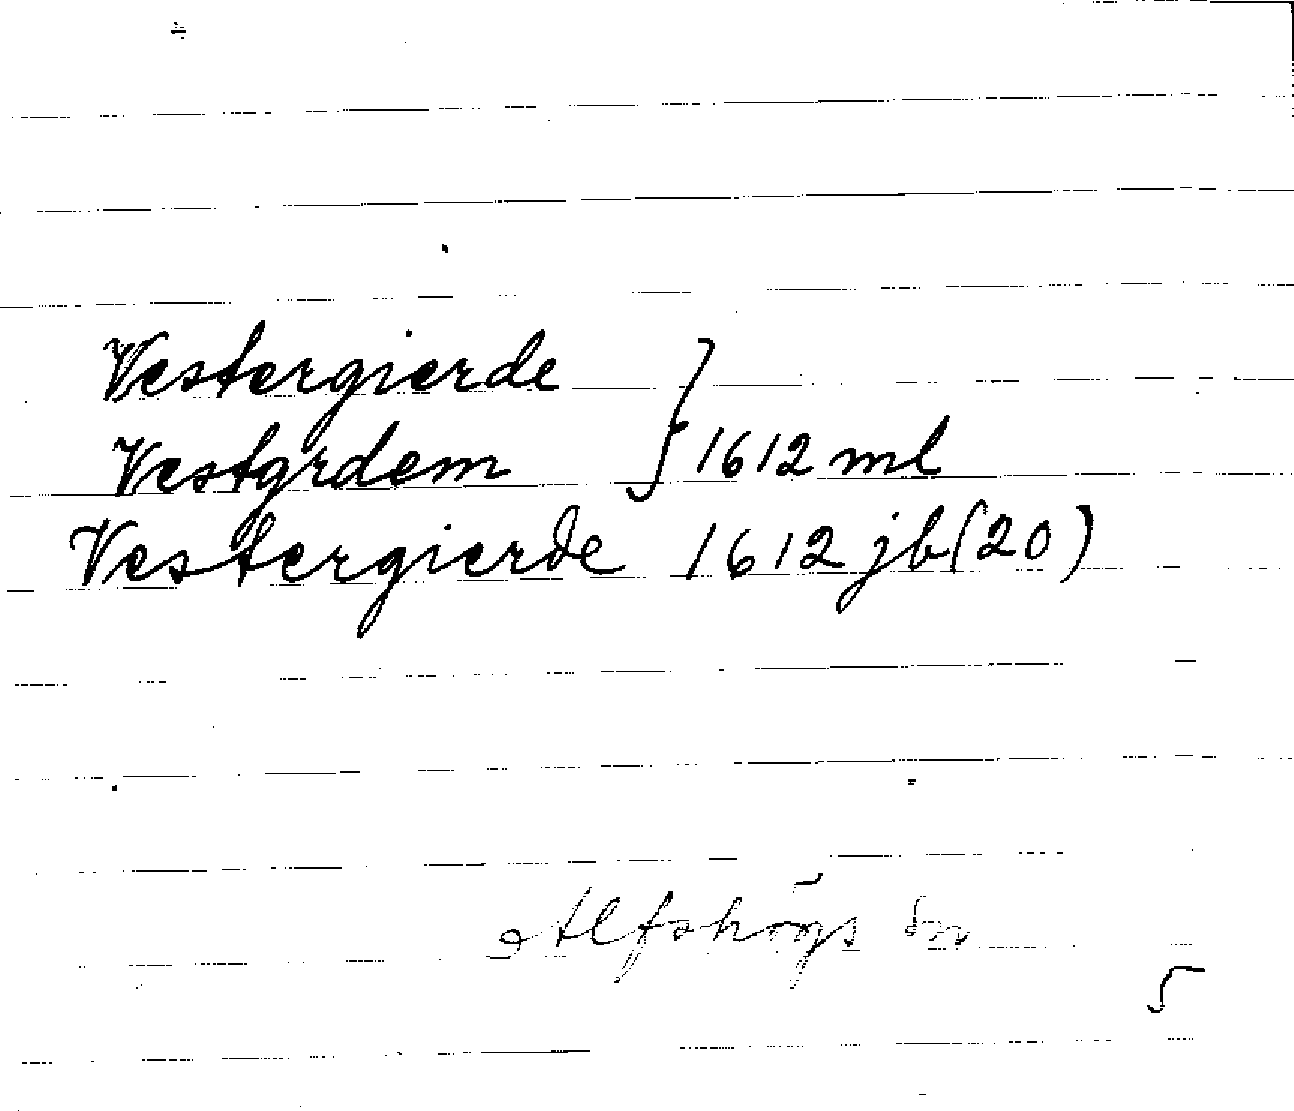 Vestergierde
Vestgrdem } 1612 ml
Vestergierde 1612 jb (20)
Alfshögs sn
5